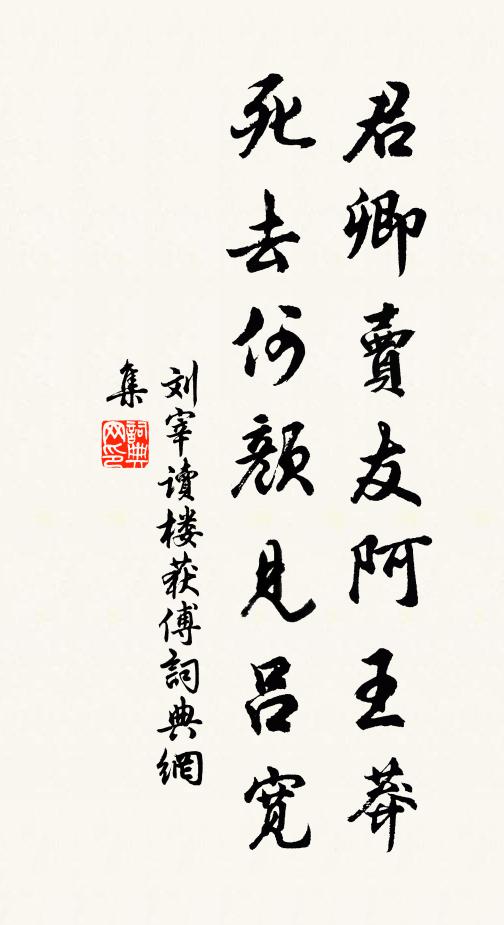 君卿賣友阿王莽
死去何顏見呂寬
刘宰读楼获傅詞典網
集
詞典網印